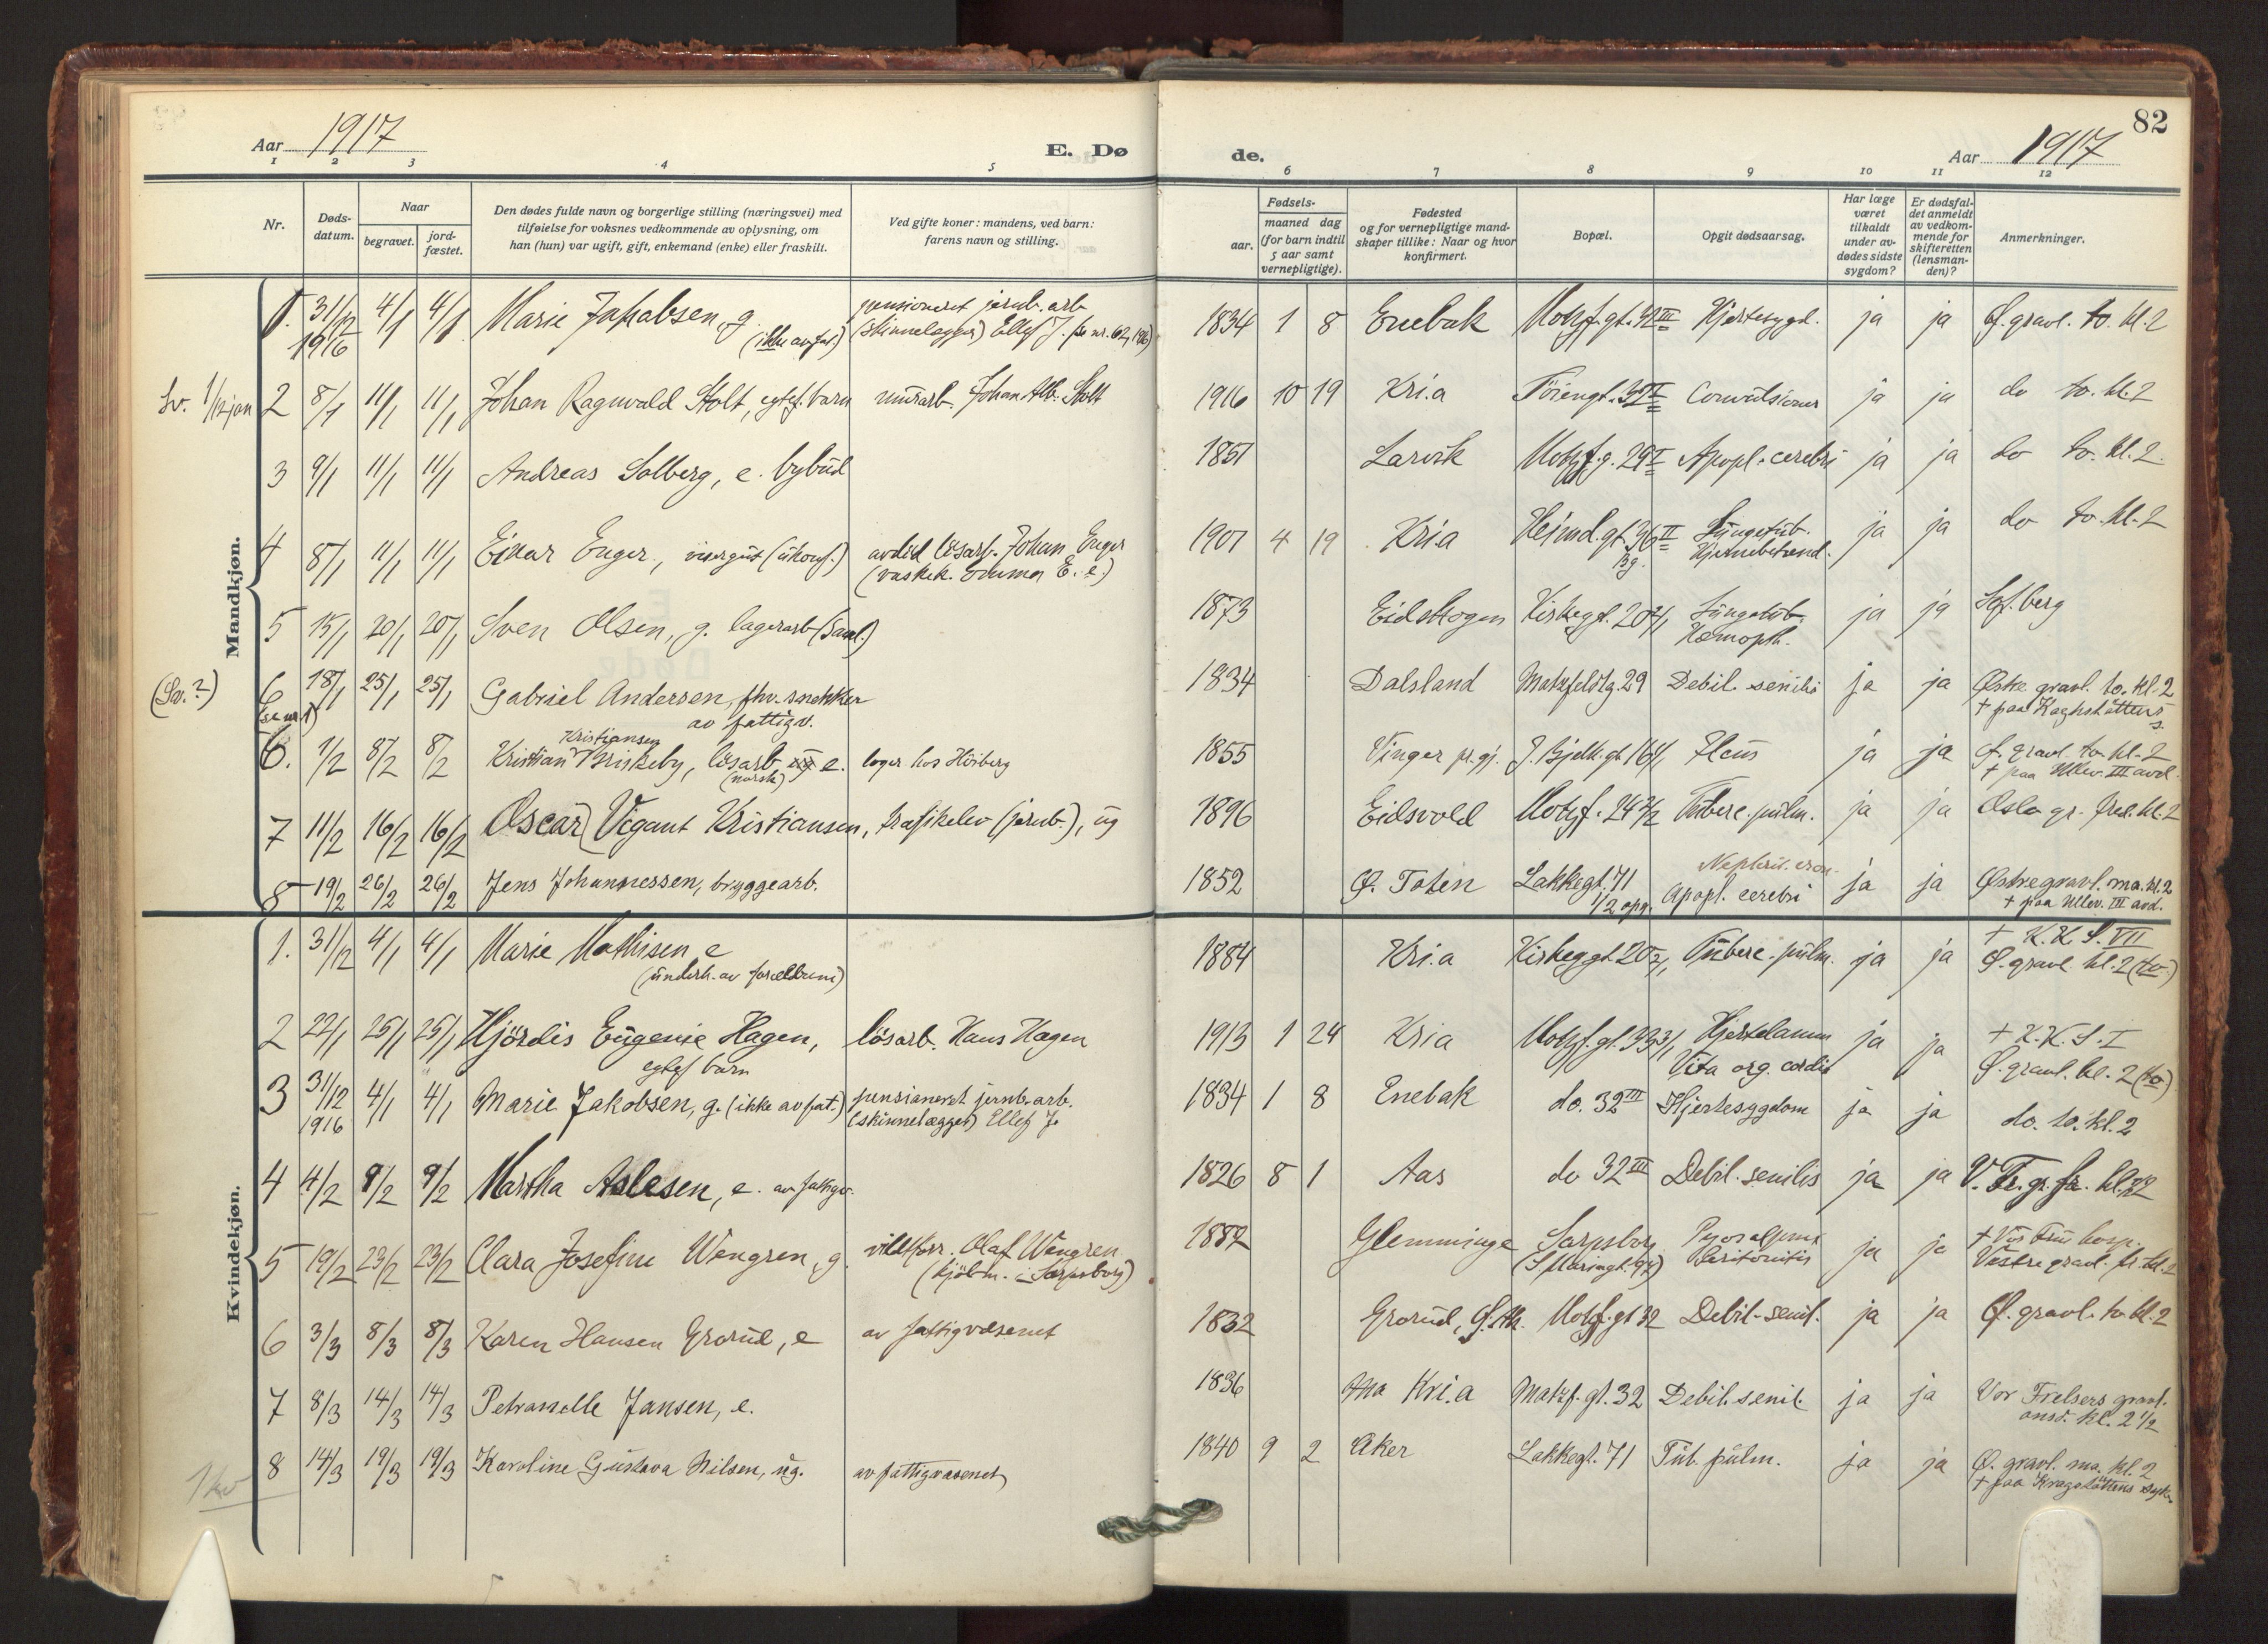 82
Aar 1917
E. Dø
de.
Aar 1917
1 2 3 4 5 6 7 8 9 10 11 12
Nr.
Døds-
datum.
Naar
begravet.
jord-
fæstet.
Den dødes fulde navn og borgerlige stilling (næringsvei) med
tilføielse for voksnes vedkommende av oplysning, om
han (hun) var ugift, gift, enkemand (enke) eller fraskilt.
Ved gifte koner: mandens, ved barn:
farens navn og stilling.
Fødsels-
aar.
maaned dag
(for barn indtil
5 aar samt
vernepligtige).
Fødested
og for vernepligtige mand-
skaper tillike: Naar og hvor
konfirmert.
Bopæl.
Opgit dødsaarsag.
Har læge
været
tilkaldt
under av-
dødes sidste
sygdom?
Er dødsfal-
det anmeldt
av vedkom-
mende for
skifteretten
(lensman-
den)?
Anmerkninger.
Mandkjøn.
1. 31/12 1916 4/1 4/1 Marie Jakobsen, g. (ikke av fat.) pensioneret jernb. arb (skinnelægger) Ellef J. 1834 1 8 Enebak Motzf. gt. 32 III Hjertesygd. ja ja Ø. gravl. to. kl. 2
Sv. 1/12 jan 2 8/1 11/1 11/1 Johan Ragnvald Stolt, egtef. barn murarb. Johan Alb. Stolt 1916 10 19 Kri.a Töiengt. Convulsioner ja ja do to. kl. 2
3 9/1 11/1 11/1 Andreas Solberg, e. bybud 1851 Larvik Motzf. g. 29 I Apopl. cerebri ja ja do to. kl. 2
4 8/1 11/1 11/1 Einar Enger, visergut (ukonf.) avdöd lösarb. Johan Enger (vaskek. Emma E. e.) 1901 4 19 Kria Heimd. gt. 36 II Bg. Lungetub. Hjernebetænd. ja ja do to. kl. 2
5 15/1 20/1 20/1 Sven Olsen, g. lagerarb 1873 Eidskogen Kirkegt. 20 Lungetub. Hæmopt. ja ja
(Sv.?) 6 18/1 25/1 25/1 Gabriel Andersen, fhv. snekker av fattigv. 1834 Dalsland Motzfeldtg. 29 Debil. senilis ja ja Østre gravl. to. kl. 2
6. 1/2 8/2 8/2 Kristian Kristiansen Briskeby, lösarb. e. (norsk) loger hos Höiberg 1855 Vinger pr. gj. J. Bjelk. gt. 16 Ileus ja ja Ø. gravl. to. kl. 2 + paa Ullev. III avd.
7 11/2 16/2 16/2 Oscar Vigant Kristiansen, trafikelev (jernb.), ug 1896 Eidsvold Motzf. 24 Tuberc. pulm. ja ja Oslo gr. fred. kl. 2
8 19/2 26/2 26/2 Jens Johannessen, bryggearb. 1852 Ø. Toten Lakkegt. 71 1/2 opg. Nephrit. cron. Apopl. cerebri ja ja Østre gravl. ma. kl. 2 + paa Ullev. III avd.
Kvindekjøn.
1. 31/12 4/1 4/1 Marie Mathisen e (underh. av forældrene) 1884 Kri.a Kirkeggt. 20 Tuberc. pulm. ja ja + K.K.S. VII Ø. gravl. kl. 2 (to.)
2 22/1 25/1 25/1 Hjördis Eugenie Hagen, egtef barn lösarb. Hans Hagen 1913 1 24 Kria Motzf. gt. 33 Hjertelamm Vita org. cordis ja ja + K.K.S. I Ø. gravl. kl. 2 (to)
3 31/12 1916 4/1 4/1 Marie Jakobsen, g. (ikke av fat.) pensioneret jernb. arb. (skinnelægger) Ellef J. 1834 1 8 Enebak do. 32 III Hjertesygdom ja ja do. to. kl. 2
4 4/2 9/2 9/2 Martha Aslesen, e. av fattigv. 1826 8 1 Aas do 32 III Debil. senilis ja ja V. Fr. gr. fr. kl.
5 19/2 23/2 23/2 Clara Josefine Wengren, g. vildtforr. Olaf Wengren (kjöbm. i Sarpsborg) 1887 Glemminge Sarpsborg Pyosalpinx Peritonitis ja ja + Vor Frue hosp. Vestre gravl. fr. kl. 2
6 3/3 8/3 8/3 Karen Hansen Grorud, e av fattigvæsenet 1832 Grorud, Ø. Ak. Motzf. gt 32 Debil. senil. ja ja Ø. gravl. to. kl. 2
7 8/3 14/3 14/3 Petronelle Jansen, e. 1836 Kri.a Motzf. gt. 32 Debil. senil. ja ja Vor Frelsers gravl. onsd. kl. 2 1/2
1 kv 8 14/3 19/3 19/3 Karoline Gustava Nilsen, ug. av fattigvæsenet 1840 9 2 Aker Lakkegt. 71 Tub. pulm. ja ja Ø. gravl. ma. kl. 2 + paa Kragstöttens syke